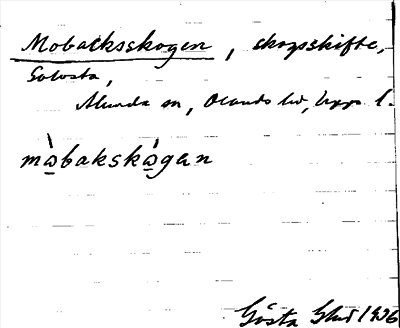 Mobacksskogen, skogsskifte,
Solosta,
Alunda sn, Olands hd, Upps l.
mὼbakskώgan
Gösta 1936